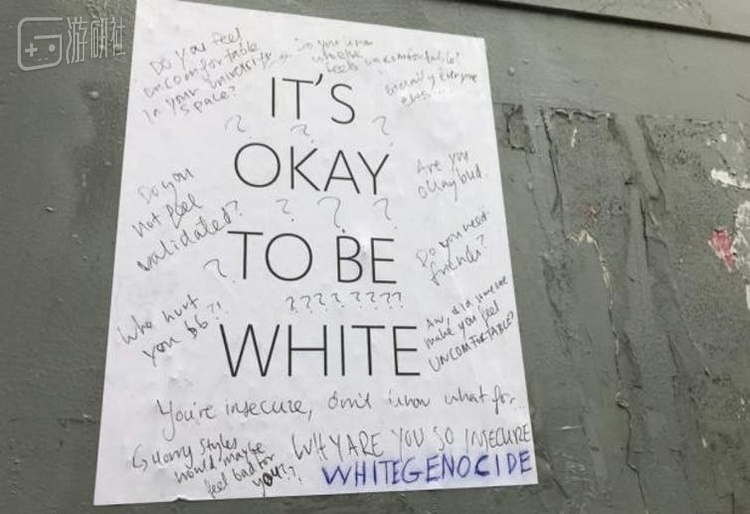 游研社
Do you feel
uncomfortable
in your university
space?
Do you know
who else
feels uncomfortable?
Literally everyone
else....
IT'S
? ? ?
OKAY
? ? ?
TO BE
?
???? ????
WHITE
Do you
not feel
validated?
Are you
okay bud.
Do you need
friends?
Who hurt
you bb?!
Aw, did someone
make you feel
UNCOMFORTABLE?
You're insecure, don't know what for...
Harry Styles
would maybe
feel bad for
you??
WHY ARE YOU SO INSECURE
WHITEGENOCIDE